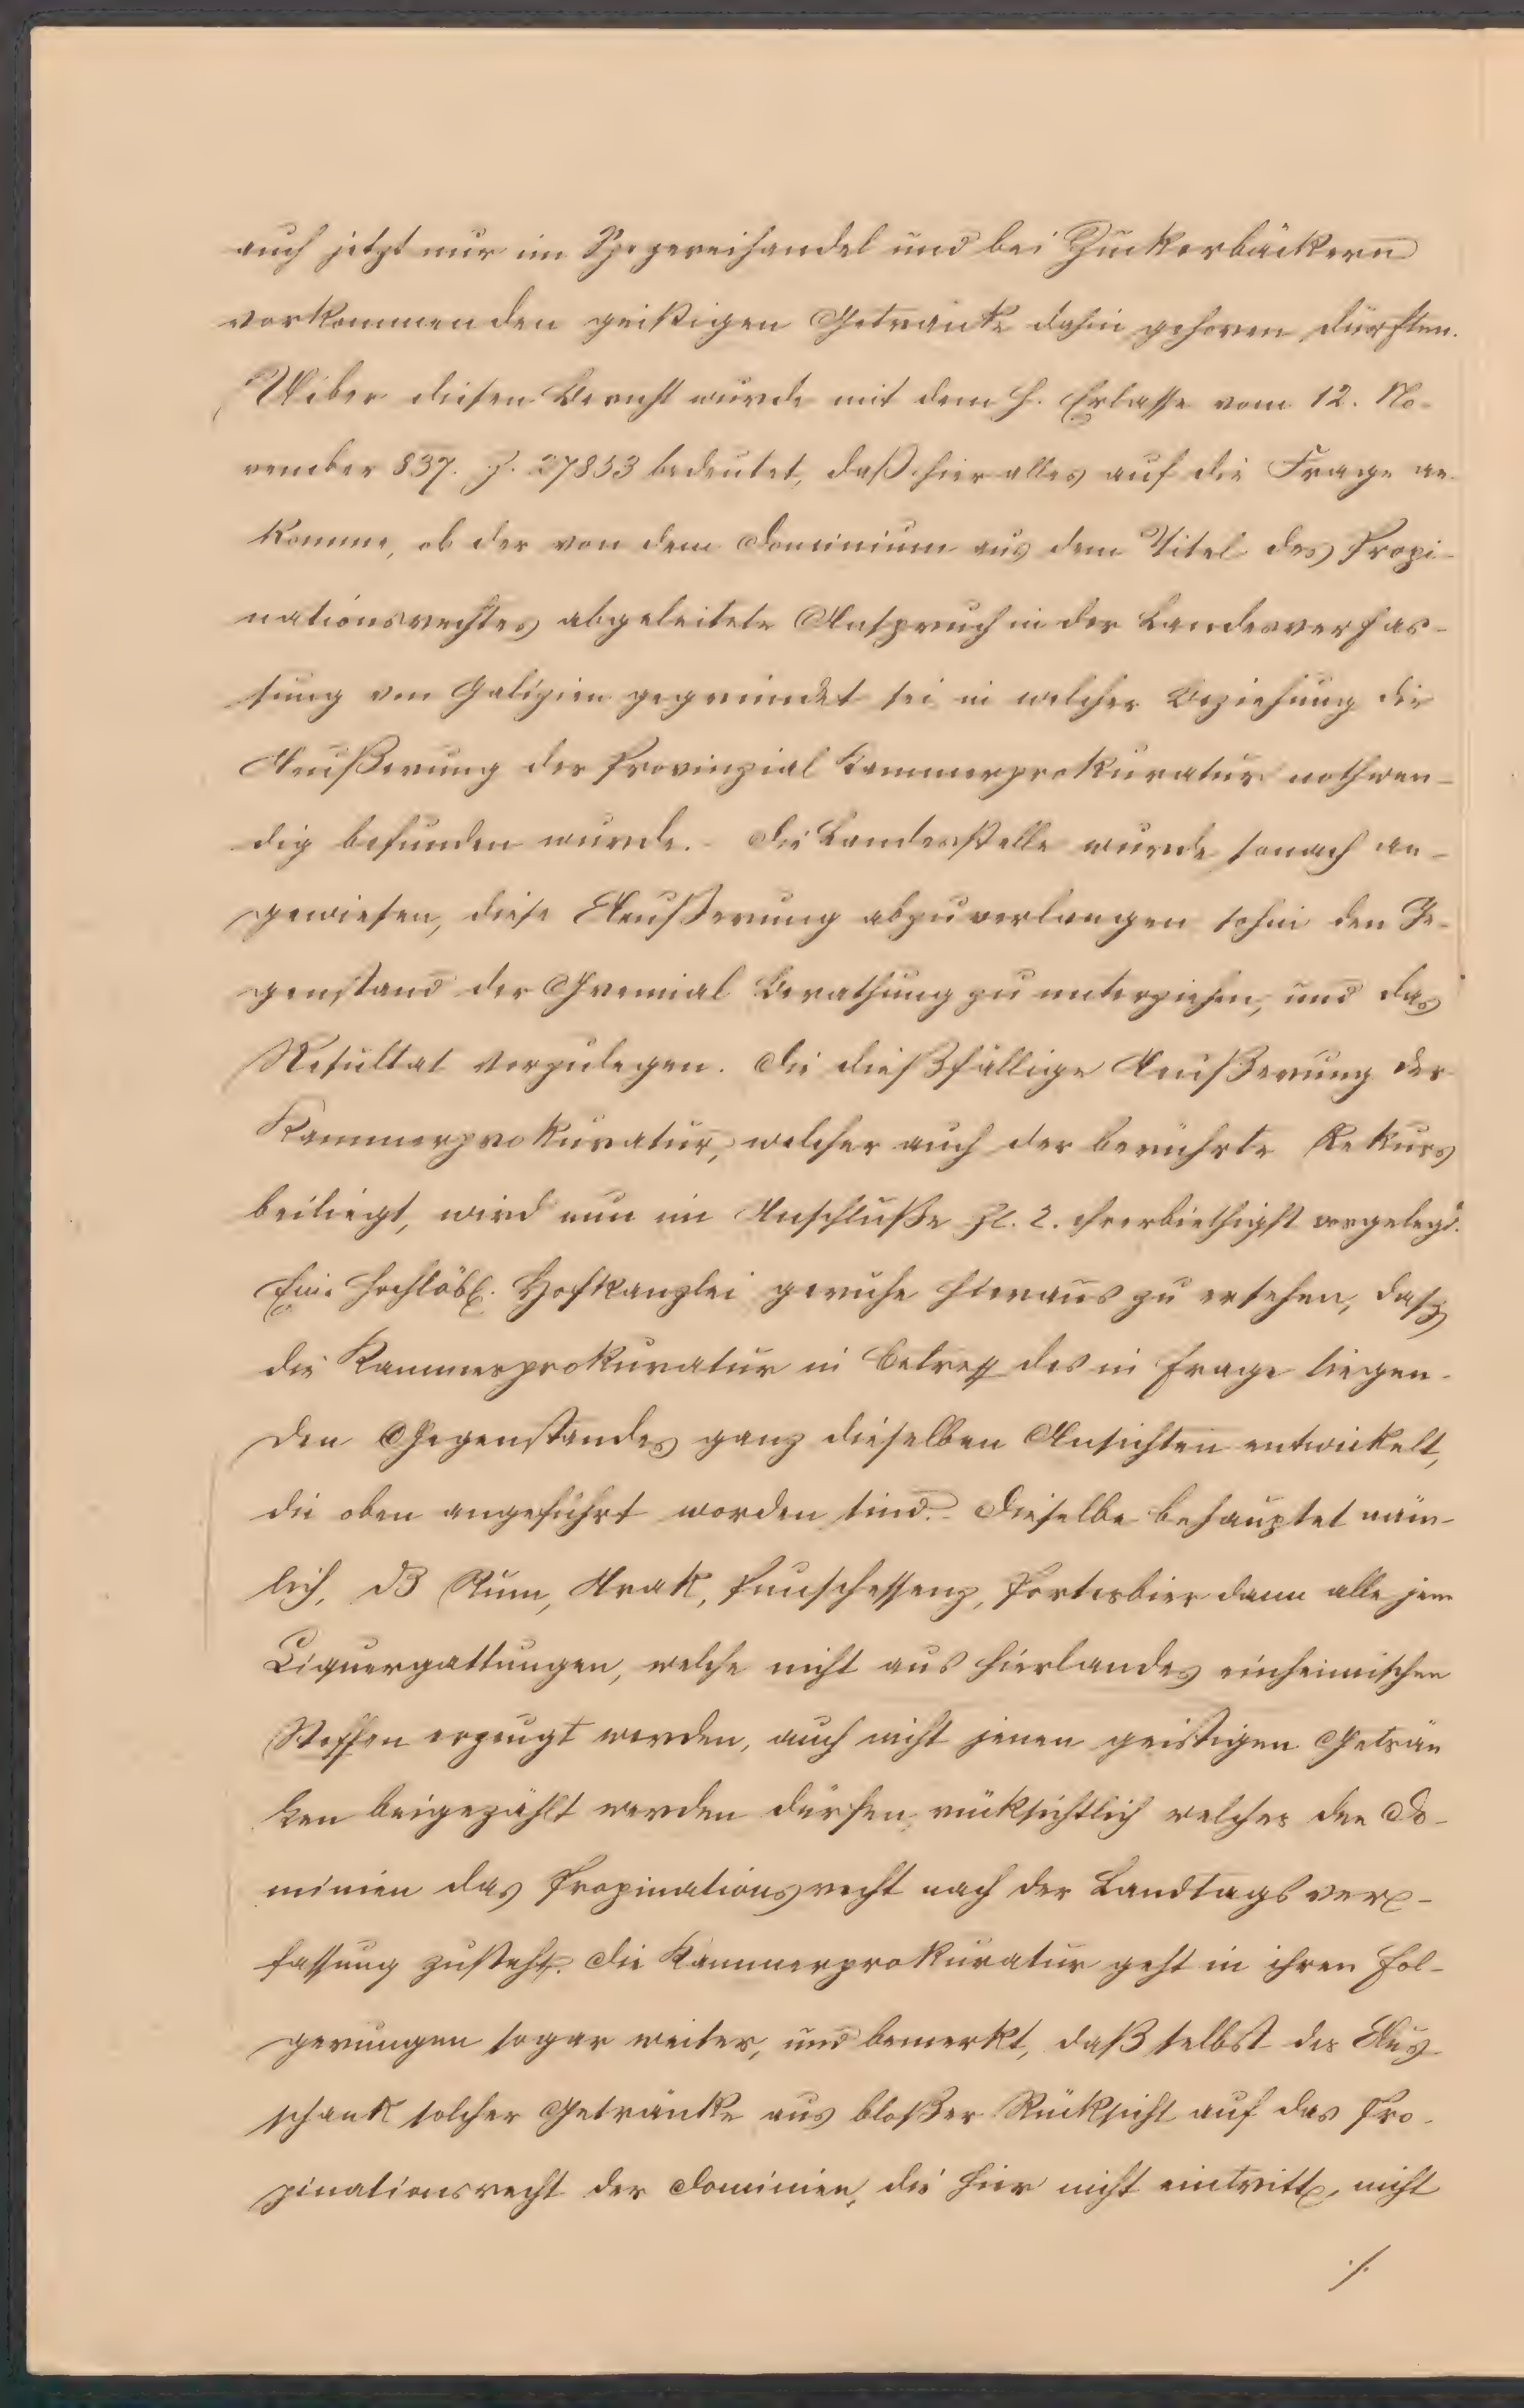 auch jetzt nur im Spezereihandel und bei Zuckerbäckern
vorkommenden geistigen Getränke dahin gehoren dürften.
Uiber diesen Bericht wurde mit dem h. Erlasse vom 12. No-
vember 837. Z. 27853 bedeutet, daß hier alles auf die Frage an
komme, ob der von dem Dominium aus dem Titel des Propi-
nationsrechtes abgeleitete Anspruch in der Landesverfas-
sung von Galizien gegründet sei in welcher Beziehung die
Aeußerung der Provinzial Kammerprokuratur nothwen-
dig befunden wurde. - Die Landesstelle wurde sonach an-
gewiesen, diese Aeußerung abzuverlangen sohin den Ge-
genstand der Gremial Berathung zu unterziehen, und das
Resultat vorzulegen. Die dießfällige Aeußerung der
Kammerprokuratur, welcher auch der berührte Rekurs
beiliegt, wird nun im Anschluße Zl. 2. ehrerbiethigst vorgelegt.
Eine hochlöbl. Hofkanzlei geruhe hieraus zu ersehen, dasz
die Kammerprokuratur in Betreff des in Frage liegen-
den Gegenstandes ganz dieselben Ansichten entwickelt,
die oben angeführt worden sind. - Dieselbe behauptet näm-
lich, dß Rum, Arak, Punschessenz, Porterbier dann alle jene
Liquergattungen, welche nicht aus hierlandes einheimischen
Stoffen erzeugt werden, auch nicht jenen geistigen Geträn
ken beigezählt werden dürfen, rücksichtlich welcher den Do-
minien das Propinationsrecht nach der Landtagsver-
fassung zusteht. Die Kammerprokuratur geht in ihren Fol-
gerungen sogar weiter, und bemerkt, daß selbst der Aus
schank solcher Getränke aus bloßer Rücksicht auf das Pro-
pinationsrecht der Dominien, die hier nicht eintritt, nicht
./.